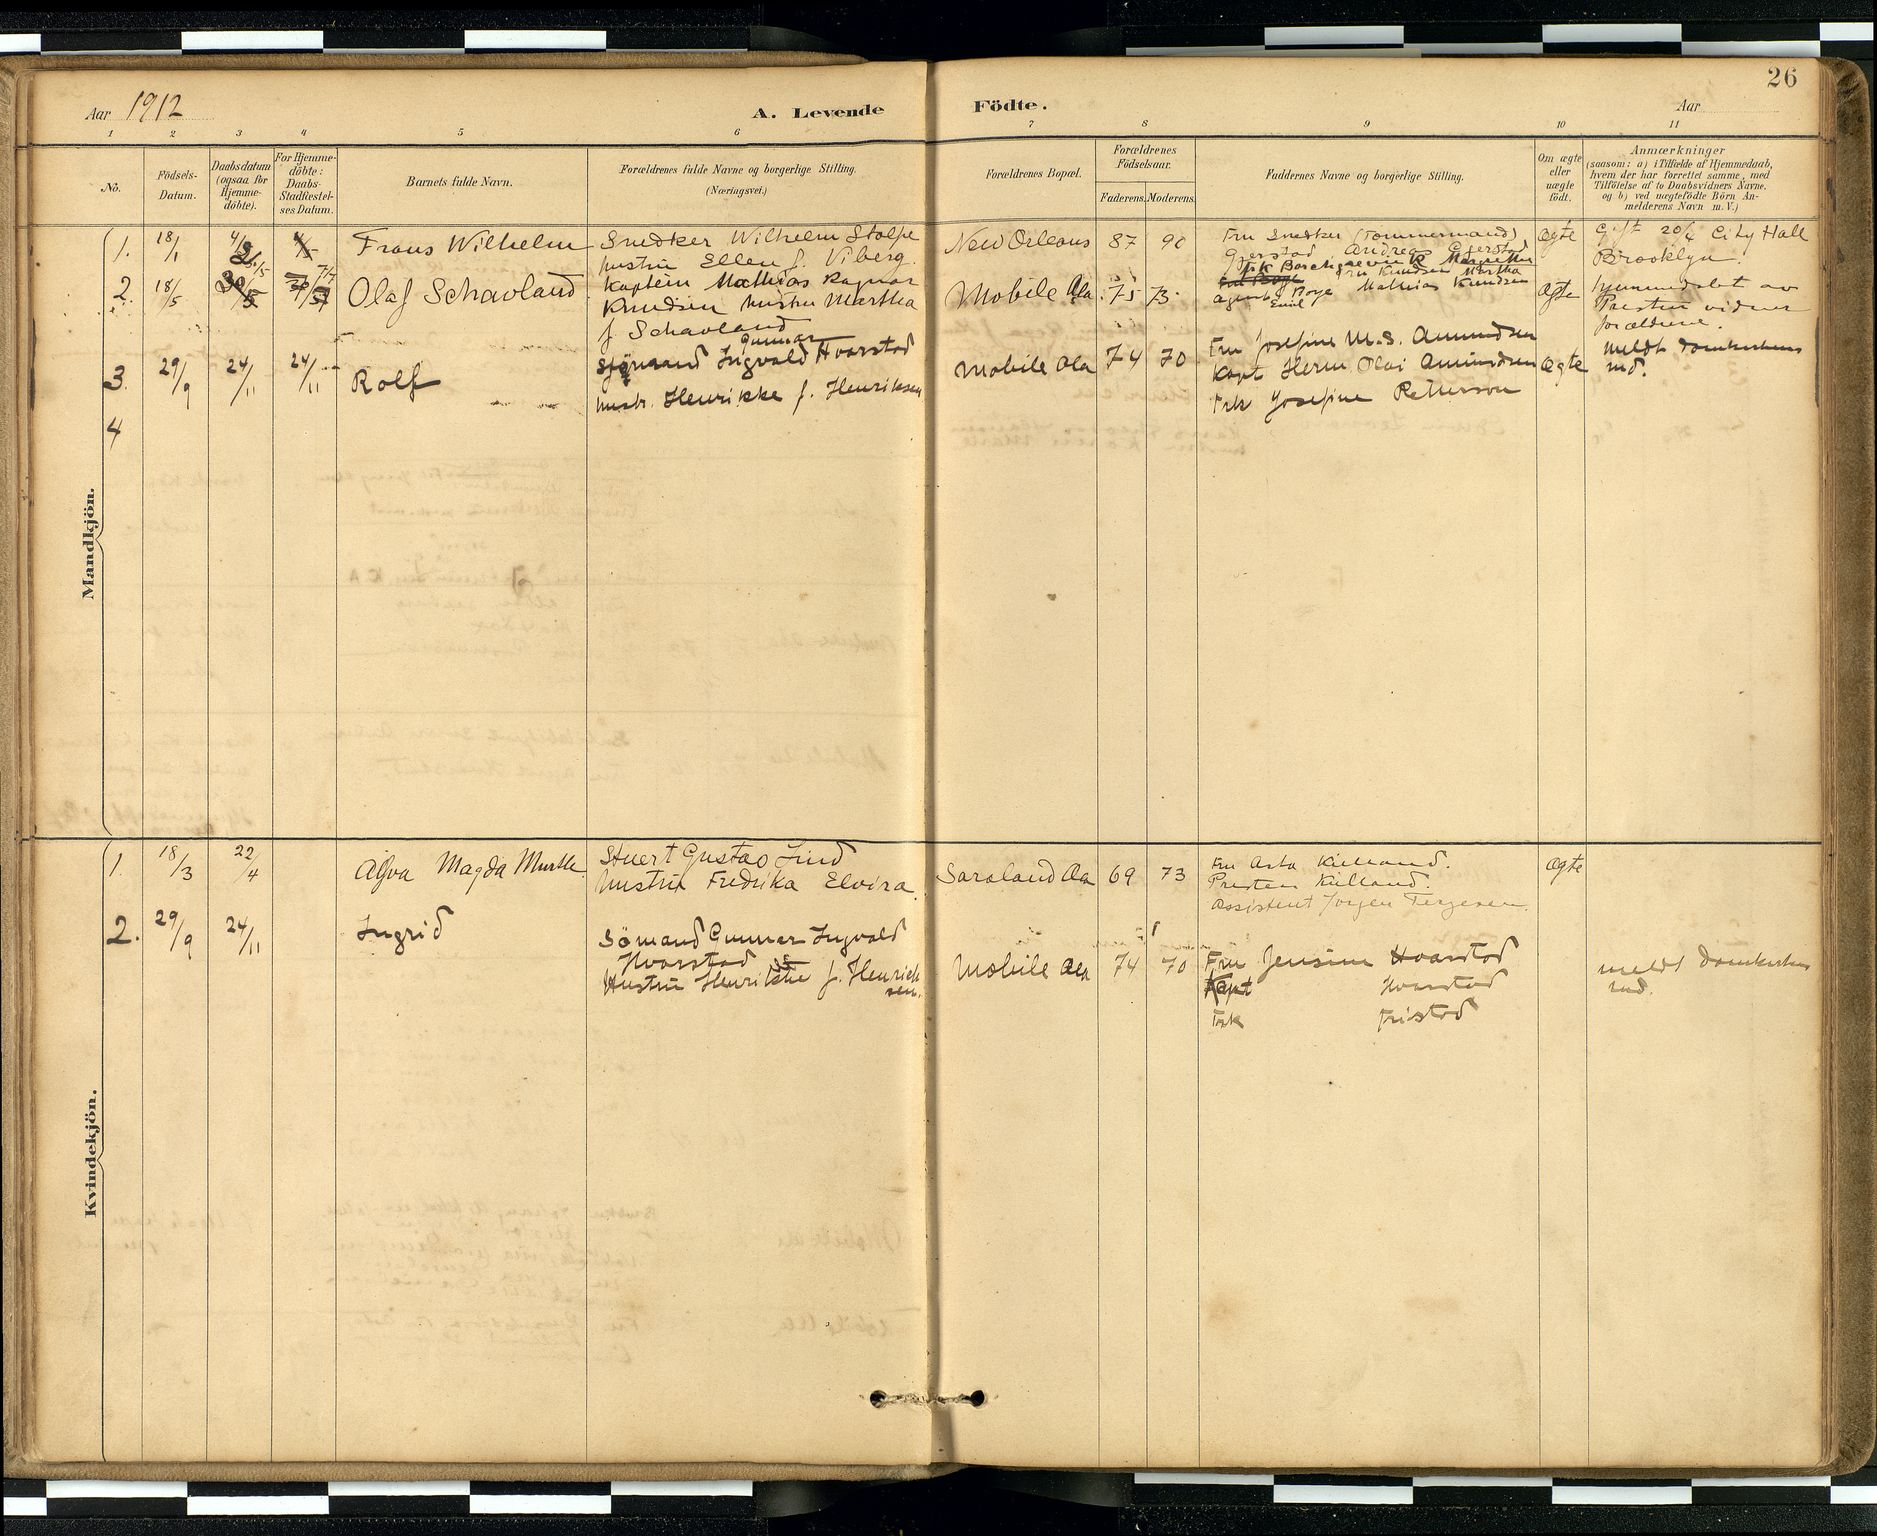 26
Aar 1912
A. Levende
Födte.
Aar
1 2 3 4 5 6 7 8 9 10 11
No.
Födsels-
Datum.
Daabsdatum
(ogsaa for
Hjemme-
döbte).
For Hjemme-
döbte:
Daabs-
Stadfæstel-
ses Datum.
Barnets fulde Navn.
Forældrenes fulde Navne og borgerlige Stilling.
(Næringsvei.)
Forældrenes Bopæl.
Forældrenes
Födselsaar.
Faderens. Moderens.
Faddernes Navne og borgerlige Stilling.
Om ægte
eller
uægte
födt.
Anmærkninger
(saasom: a) i Tilfælde af Hjemmedaab,
hvem der har forrettet samme, med
Tilföielse af to Daabsvidners Navne,
og b) ved uægtefödte Börn An-
melderens Navn m. V.)
Mandkjön.
1. 18/1
Frans Wilhelm
Snedker Wilhelm Stolpe
hustru Ellen f. Viberg.
New Orleans
87 90
Fru Snedker (Tommermand)
Gjerstad Andreas Gjerstad
Ægte
Gift 20/4 City Hall
Brooklyn.
2. 18/5
7/7
Olaf Schavland
Kaptein Mathias Ragnar
Knudsen hustru Martha
f Schavland
Mobile Ala.
75 73.
Fru Knudsen Martha
agent Borge Mathias Knudsen
Emil
Ægte
hjemmedøbt av
Presten vidner
forældrene.
3. 29/9 24/11 24/11
Rolf
Gunnar
Sjömand Ingvald Hvarstad
hustr. Henrikke f. Henriksen
Mobile Ala
74 70
Fru Josefine M.S. Amundsen
Kapt Herm Olai Amundsen
Frk Josefine Petterson
Ægte
meldt Domkirkens
md.
4
Kvindekjön.
1. 18/3 22/4
Alfva Magda Murtle
Stuert Gustav Lind
hustru Fredrika Elvira.
Saraland Ala
69 73
Fru Asta Kielland.
Presten Kielland.
Assistent Jörgen Terjesen.
Ægte
2. 29/9 24/11
Ingrid
Sömand Gunnar Ingvald
Hvarstad
Hustru Henrikke f. Henrick
sen.
Mobile Ala
74 70
Fru Jensine Hvarstad
Kapt Hvarstad
Frk Fristad
meldt Domkirkens
md.